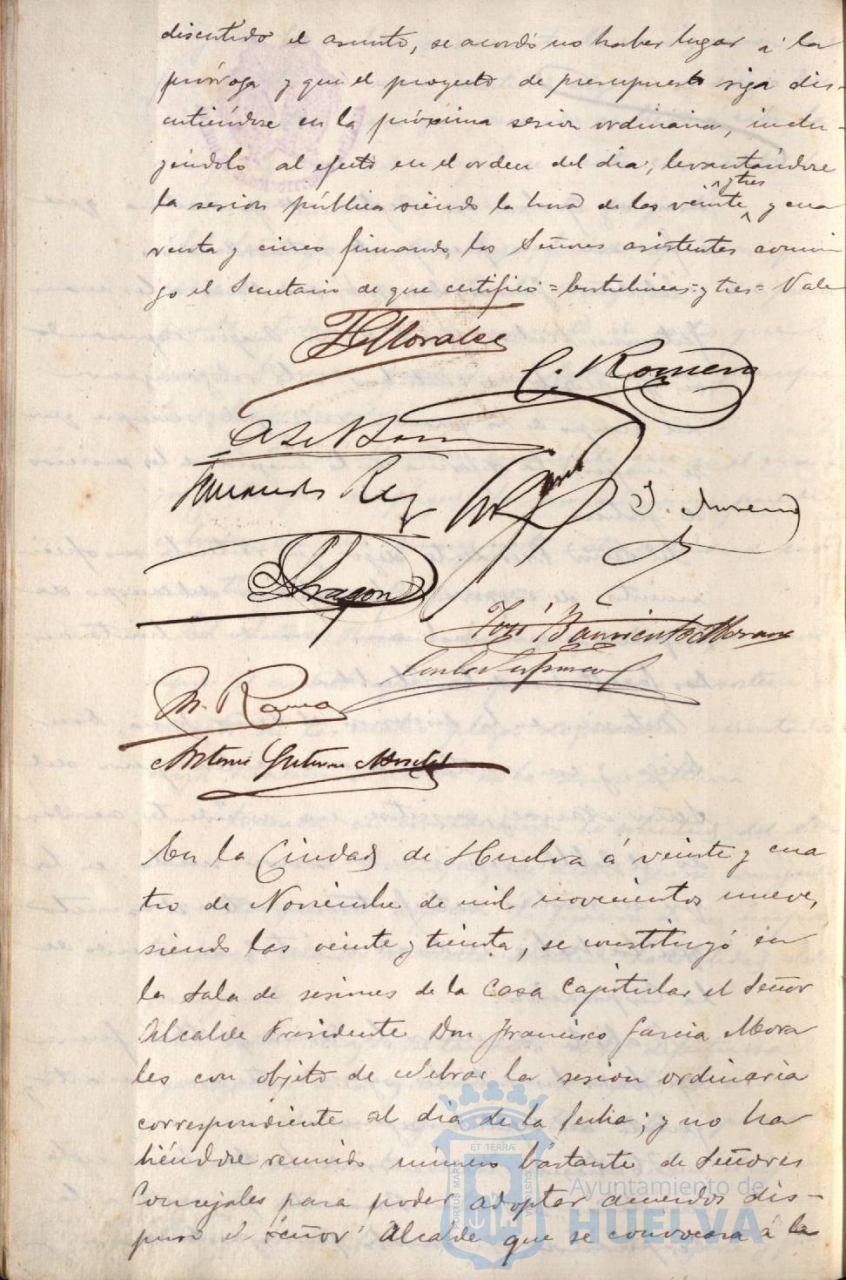 discutido el asunto, se acordó no haber lugar á la
prórroga y que el proyecto de presupuesto siga dis-
cutiéndose en la próxima sesion ordinaria, inclu-
yéndolo al efecto en el orden del dia, levantándose
y tres
la sesion pública siendo la hora de las veinte y cua
renta y cinco firmando los Señores asistentes conmi
go el Secretario de que certifico = Entrelineas = y tres = Vale
F. G. Morales
C. Romero
Rey
J. Moreno
Aragon
José Barrientos Moran
M. Roma
Antonio Gutierrez
En la Ciudad de Huelva á veinte y cua
tro de Noviembre de mil novecientos nueve,
siendo las veinte y treinta, se constituyó en
la Sala de sesiones de la Casa Capitular el Señor
Alcalde Presidente Don Francisco Garcia Mora
les con objeto de celebrar la sesion ordinaria
correspondiente al dia de la fecha; y no ha
biéndose reunido número bastante de Señores
Concejales para poder adoptar acuerdos dis-
puso el Señor Alcalde que se convocara á la
ET TERRÆ
PORTUS MARIS
CUSTODIA
Ayuntamiento de
HUELVA